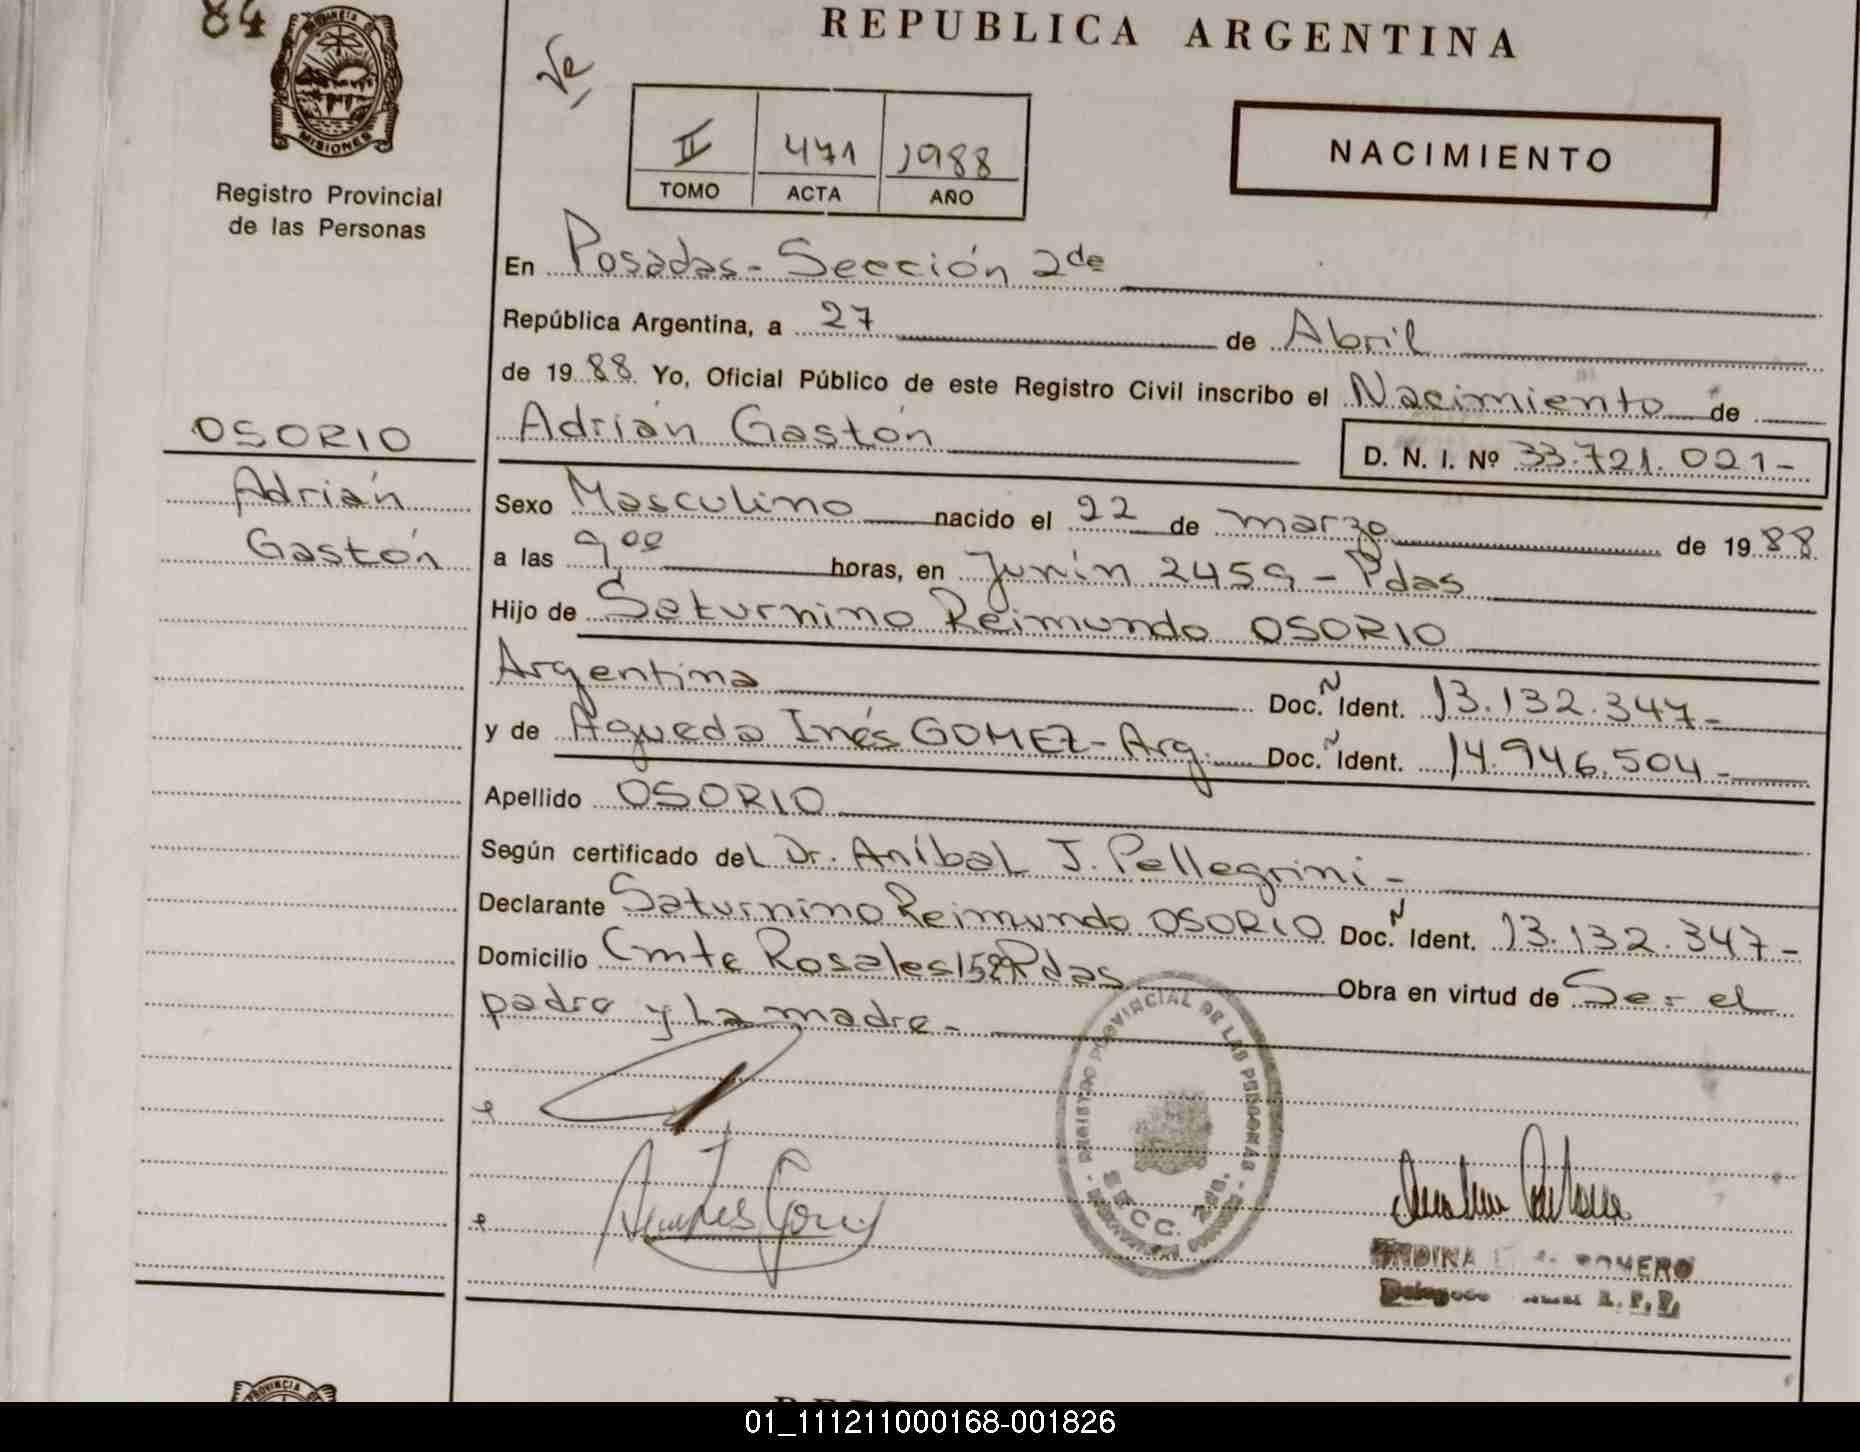 84
REPUBLICA ARGENTINA
PROVINCIA DE
MISIONES
II 471 1988
TOMO ACTA AÑO
NACIMIENTO
Registro Provincial
de las Personas
En Posadas - Sección 2da
República Argentina, a 27 de Abril
de 1988 Yo, Oficial Público de este Registro Civil inscribo el Nacimiento de
OSORIO
Adrián Gastón
D. N. I. Nº 33.721.021-
Adrián
Gastón
Sexo Masculino nacido el 22 de marzo de 1988
a las 9,00 horas, en Junín 2459 - Pdas
Hijo de Saturnino Reimundo OSORIO
Argentina Doc. N Ident. 13.132.347-
y de Agueda Inés GOMEZ - Arg. Doc. N Ident. 14.946.504-
Apellido OSORIO
Según certificado del Dr. Aníbal J. Pellegrini -
Declarante Saturnino Reimundo OSORIO Doc. N Ident. 13.132.347-
Domicilio Cmte Rosales Pdas Obra en virtud de Ser el
padre y La madre.-
REGISTRO PROVINCIAL DE LAS PERSONAS
SECC. 2da.
ROMERO
01_111211000168-001826